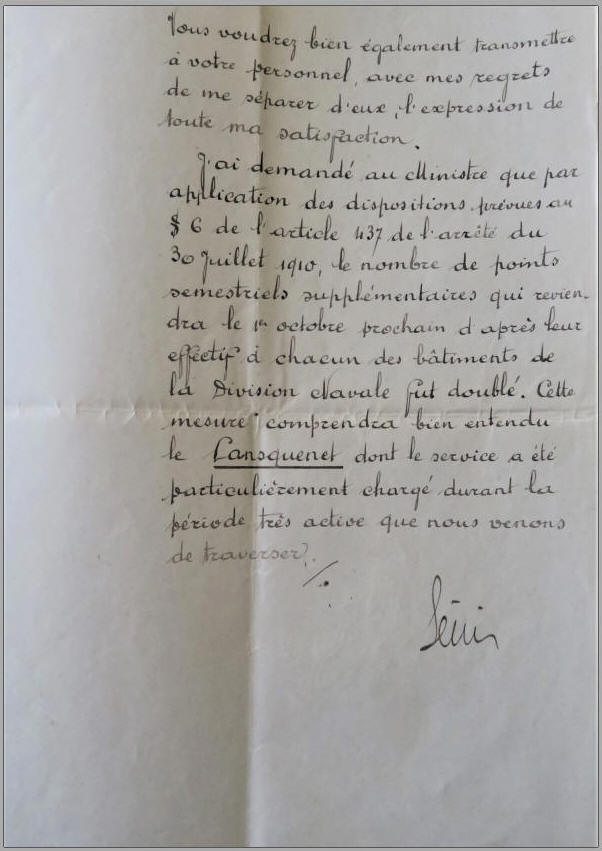 Vous voudrez bien également transmettre
à votre personnel, avec mes regrets
de me séparer d'eux, l'expression de
toute ma satisfaction.
J'ai demandé au Ministre que par
application des dispositions prévues au
§ 6 de l'article 437 de l'arrêté du
30 Juillet 1910, le nombre de points
semestriels supplémentaires qui revien-
dra le 1er octobre prochain d'après leur
effectif à chacun des bâtiments de
la Division Navale fut doublé. Cette
mesure comprendra bien entendu
le Lansquenet dont le service a été
particulièrement chargé durant la
période très active que nous venons
de traverser.